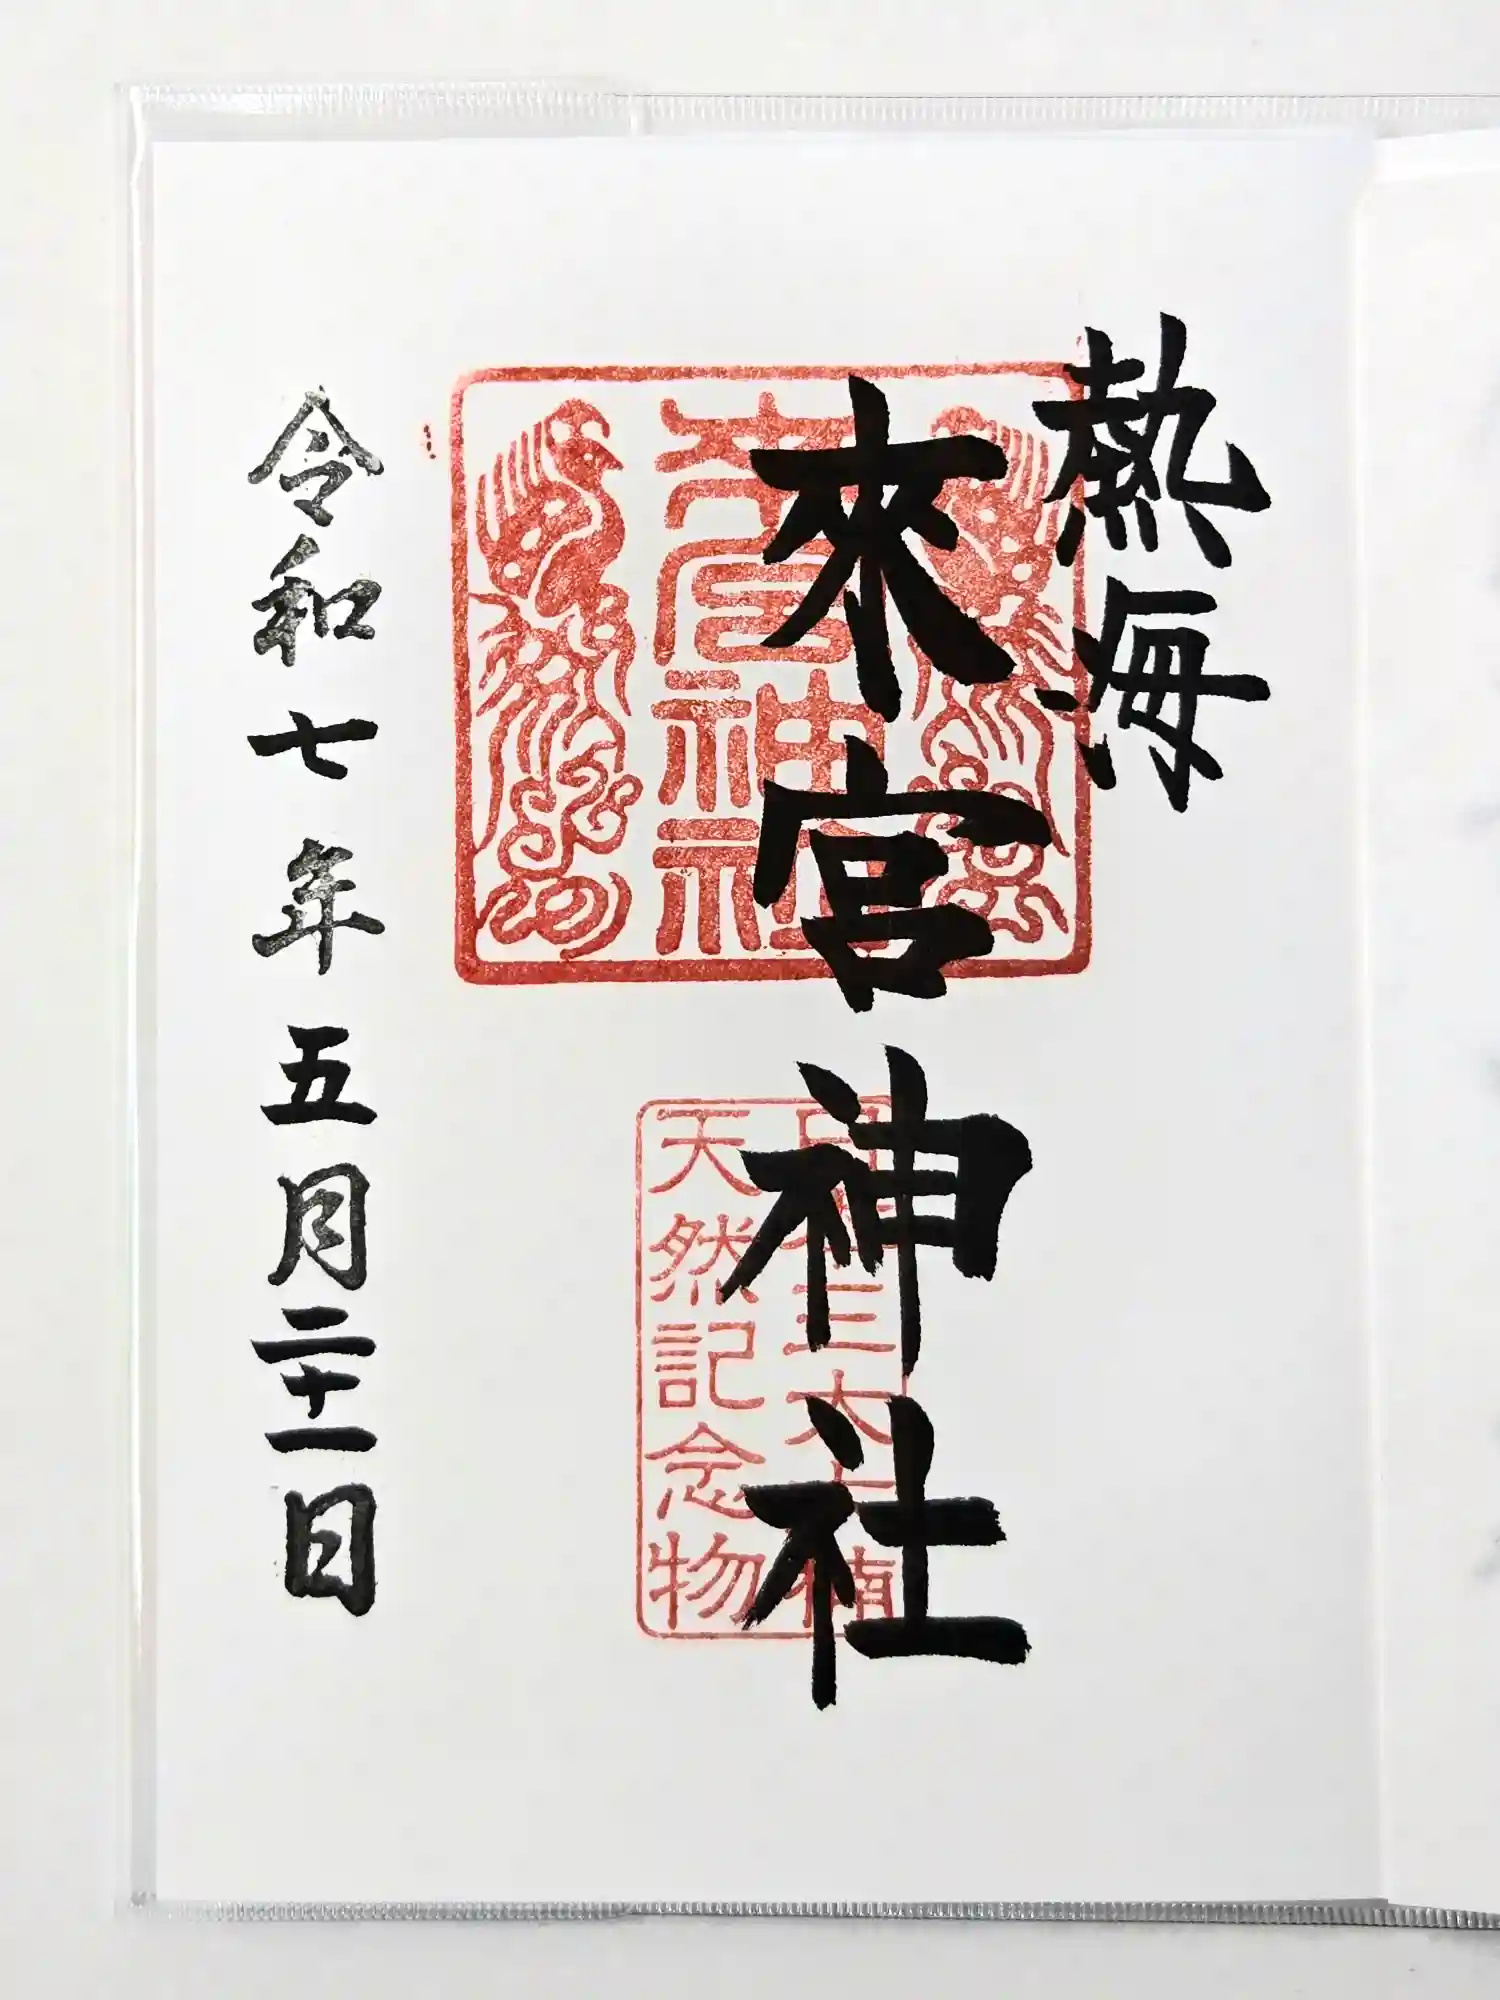 熱海
來宮神社
来宮神社
日本三大大楠
天然記念物
令和七年五月二十一日